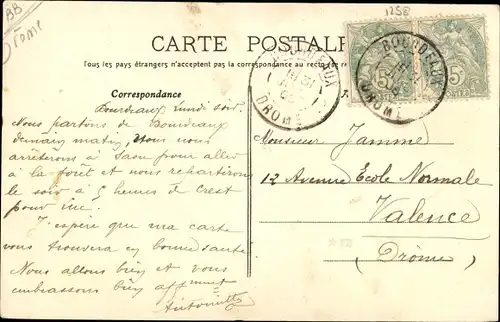 BB
Drome
1258
CARTE POSTALE
Tous les pays étrangers n'acceptent pas la correspondance au recto
Correspondance
BOURDEAUX
DROME
BOURDEAUX
DROME
5
5
Bourdeaux Lundi soir
Nous partons de Bourdeaux
demain matin, nous nous
arrêterons à Saou pour aller
à la forêt et nous repartirons
le soir à 5 heures de Crest
pour
J'espère que ma carte
vous trouvera en bonne santé
Nous allons bien et vous
embrassons bien affmunt
Antoinette
Monsieur Jamme
12 Avenue Ecole Normale
Valence
(Drôme)